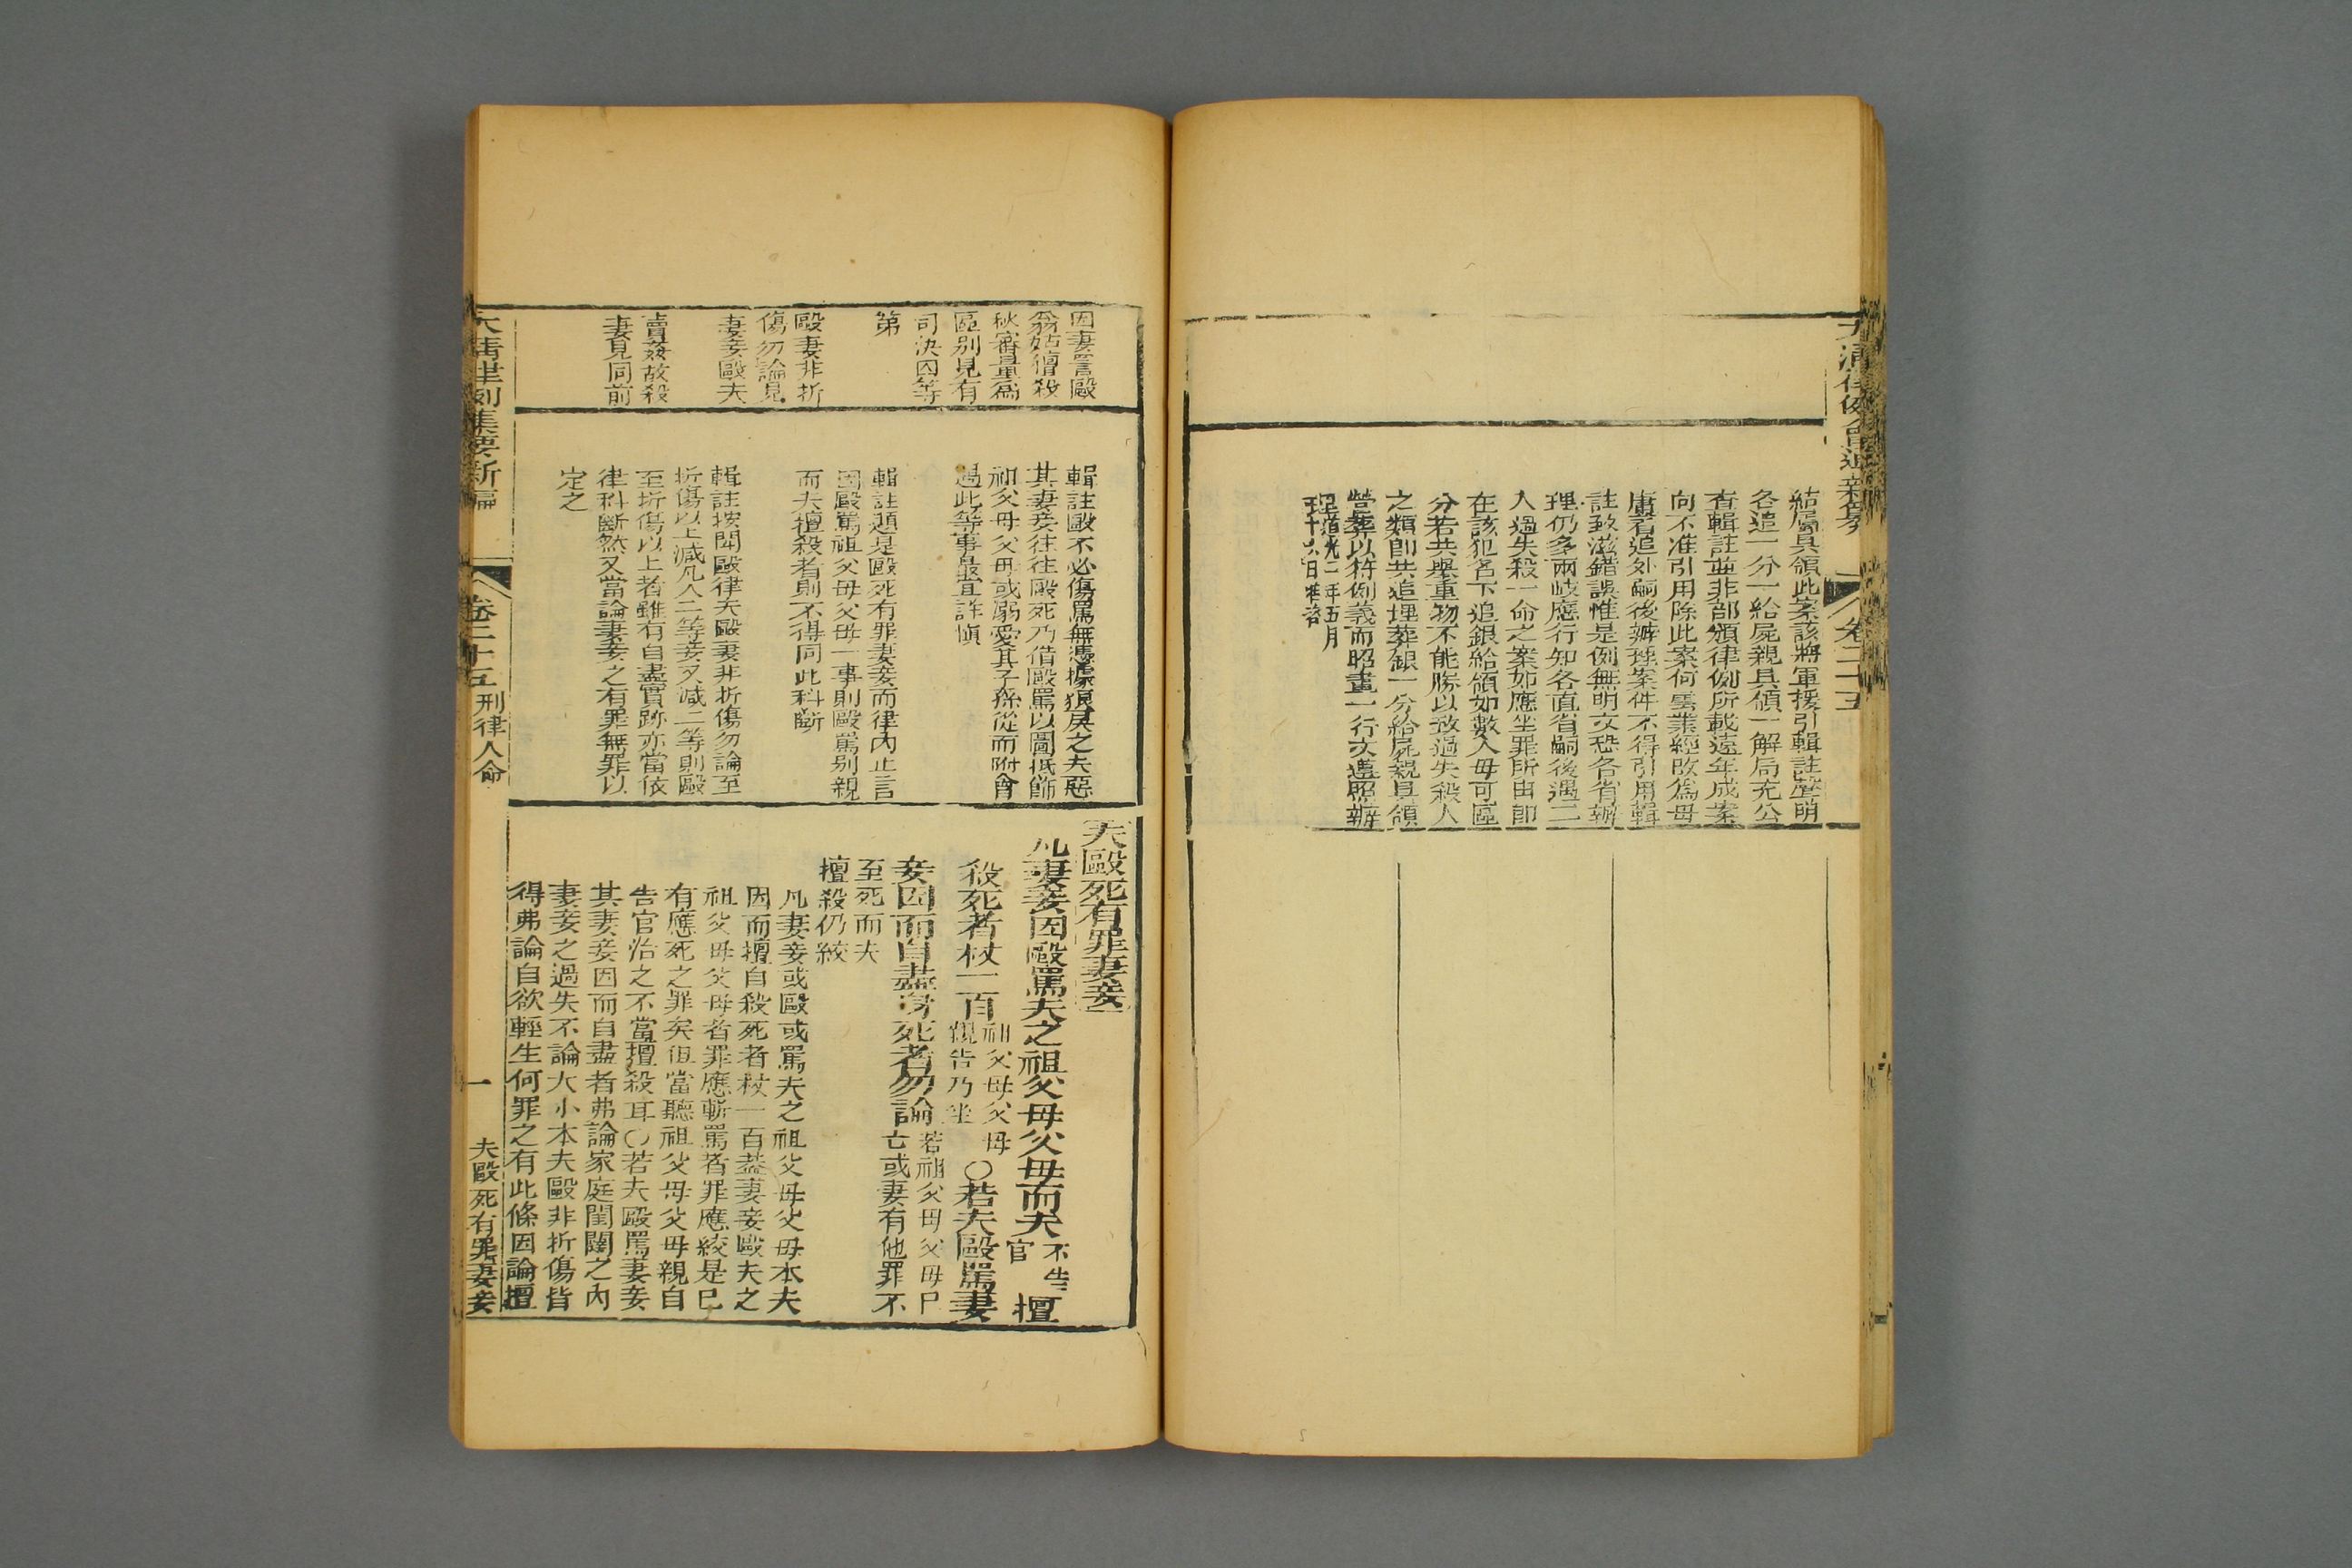 結屬具領此案該將軍援引輯註聲明
各追一分一給屍親具領一解局充公
查輯註並非部頒律例所載遠年成案
向不准引用除此案何 業經改爲毋
庸着追外嗣後辦理案件不得引用輯
註致滋錯誤惟是例無明文恐各省辦
理仍多兩岐應行知各直省嗣後遇二
人過失殺一命之案如應坐罪所由即
在該犯名下追銀給領如數人毋可區
分若共舉重物不能勝以致過失殺人
之類即共追埋葬銀一分給屍親具領
營葬以符例義而昭畫一行文遵照辦
理道光二年五月
十六日 咨
卷二十五
因妻詈毆
翁姑擅殺
秋審量爲
區別見有
司決囚等
第
毆妻非折
傷勿論見
妻妾毆夫
賣姦故殺
妻見同前
輯註毆不必傷罵無憑據狠戾之夫惡
其妻妾往往毆死乃借毆罵以圖抵飾
祖父母父母或溺愛其子孫從而附會
遇此等事最宜詳慎
輯註題是毆死有罪妻妾而律內止言
因毆罵祖父母父母一事則毆罵別親
而夫擅殺者則不得同此科斷
輯註按閗毆律夫毆妻非折傷勿論至
折傷以上減凡人二等妾又減二等則毆
至折傷以上者雖有自盡實跡亦當依
律科斷然又當論妻妾之有罪無罪以
定之
夫毆死有罪妻妾
凡妻妾因毆罵夫之祖父母父母而夫不告官擅
殺死者杖一百祖父母父母親告乃坐○若夫毆罵妻
妾因而自盡身死者勿論若祖父母父母已亡或妻有他罪不
至死而夫
擅殺仍絞
凡妻妾或毆或罵夫之祖父母父母本夫
因而擅自殺死者杖一百蓋妻妾毆夫之
祖父母父母者罪應斬罵者罪應絞是已
有應死之罪矣但當聽祖父母父母親自
告官治之不當擅殺耳○若夫毆罵妻妾
其妻妾因而自盡者弗論家庭閨闥之內
妻妾之過失不論大小本夫毆非折傷皆
得弗論自欲輕生何罪之有此條因論擅
大清律例集要新編
卷二十五
刑律人命
一
夫毆死有罪妻妾